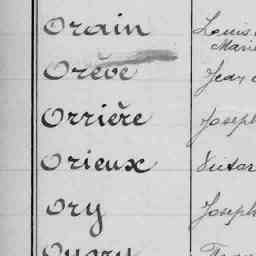 Orain Louis
Marie
Orève Jean
Orrière Joseph
Orieux
Ory Joseph